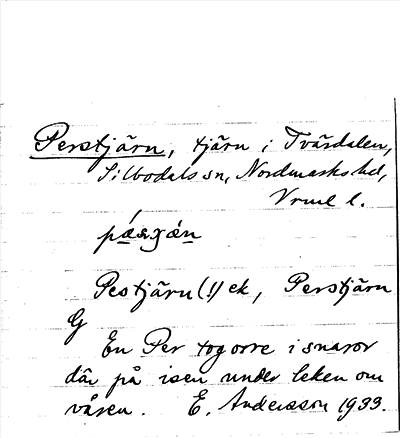 Perstjärn, tjärn i Tvärdalen,
Silbodals sn, Nordmarks hd,
Vrml l.
Pestjärn (!) ek, Perstjärn
G
En Per tog orre i snaror
där på isen under leken om
våren. E. Andersson 1933.